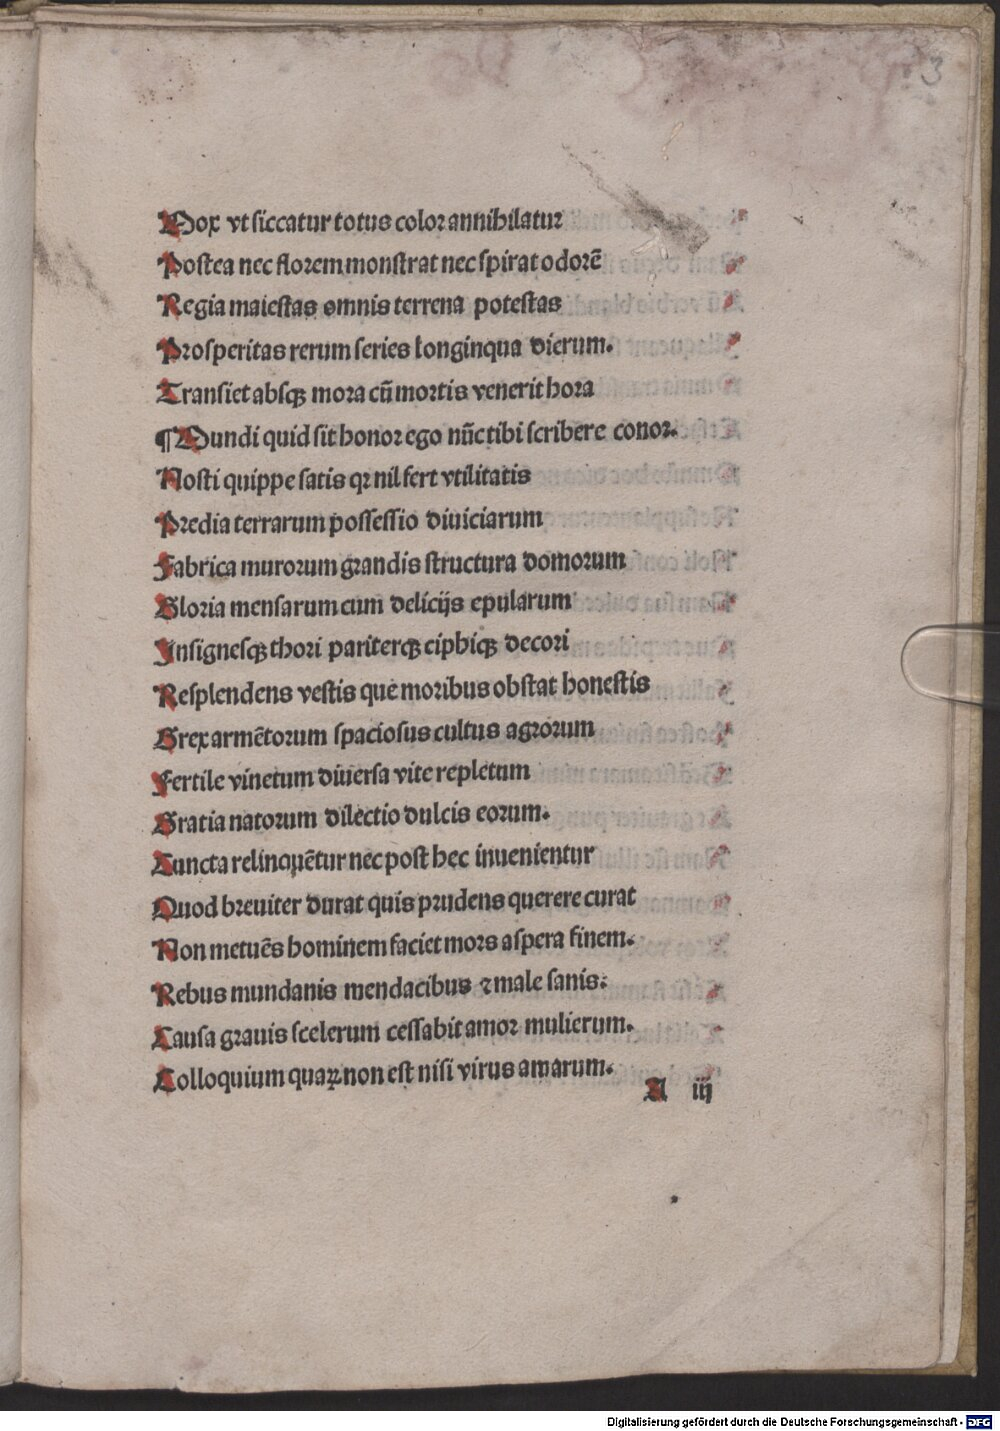 3
Mox vt ſiccatur totus color annihilatur
Poſtea nec florem monſtrat nec ſpirat odorē
Regia maieſtas omnis terrena poteſtas
Proſperitas rerum ſeries longinqua dierum.
Tranſiet abſqꝫ mora cū mortis venerit hora
¶Mundi quid ſit honor ego nūc tibi ſcribere conor.
Noſti quippe ſatis qꝛ nil fert vtilitatis
Predia terrarum poſſeſſio diuiciarum
Fabrica murorum grandis ſtructura domorum
Gloria menſarum cum delicijs epularum
Inſigneſqꝫ thori pariterqꝫ ciphiqꝫ decori
Reſplendens veſtis que moribus obſtat honeſtis
Grex armētorum ſpacioſus cultus agrorum
Fertile vinetum diuerſa vite repletum
Gratia natorum dilectio dulcis eorum.
Cuncta relinquētur nec poſt hec inuenientur
Quod breuiter durat quis prudens querere curat
Non metuēs hominem faciet mors aſpera finem.
Rebus mundanis mendacibus ⁊ male ſanis:
Cauſa grauis ſcelerum ceſſabit amor mulierum.
Colloquium quaꝝ non eſt niſi virus amarum.
A iij
Digitalisierung gefördert durch die Deutsche Forschungsgemeinschaft - DFG